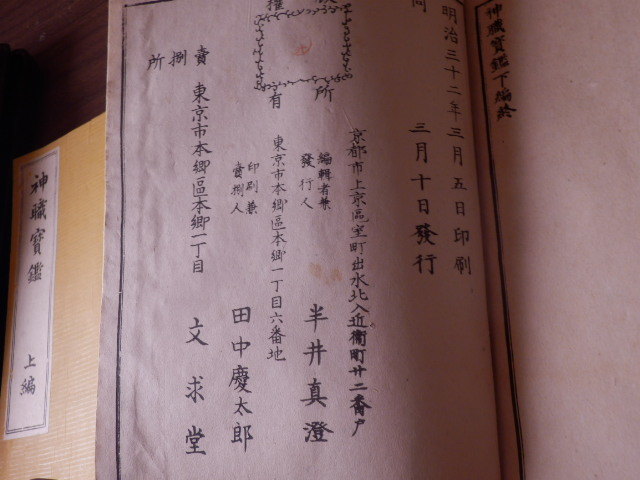 神職寶鑑下編終
明治三十二年三月五日印刷
同
三月十日發行
京都市上京區室町出水北入近衞町廿二番戸
編輯者兼
發行人
半井真澄
東京市本鄉區本鄉一丁目六番地
印刷兼
賣捌人
田中慶太郎
權
所
有
賣捌所
東京市本鄉區本鄉一丁目
文求堂
神職寶鑑
上編